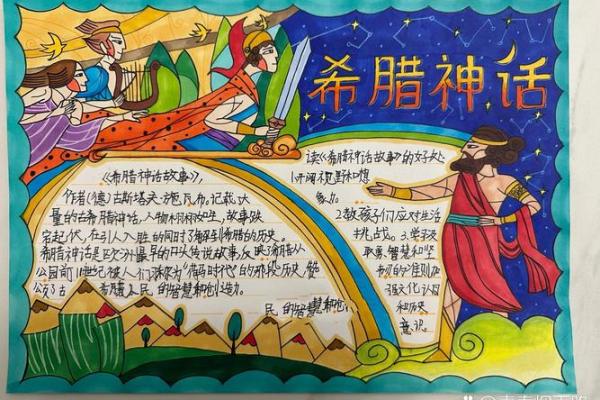 希腊神话
《希腊神话故事》,
作者(德)古斯塔夫·施瓦布。记载大
量的古希腊神话,人物栩栩如生,故事跌
宕起伏,在引人入胜的同时了解到希腊的历史。
希腊神话是欧洲最早的口头传说故事反映了希腊从
公园前11世纪被人们称为“荷马时代”的那段历史,赞
颂了古希腊人民的智慧和创造力。
民的智慧和创
读《希腊神话故事》的好处
1.开阔视野和想
象力。
2.教孩子们应对生活
挑战。3.学习
勇敢、智慧和坚
韧的准则。4.
强文化认同
和历史
意识。